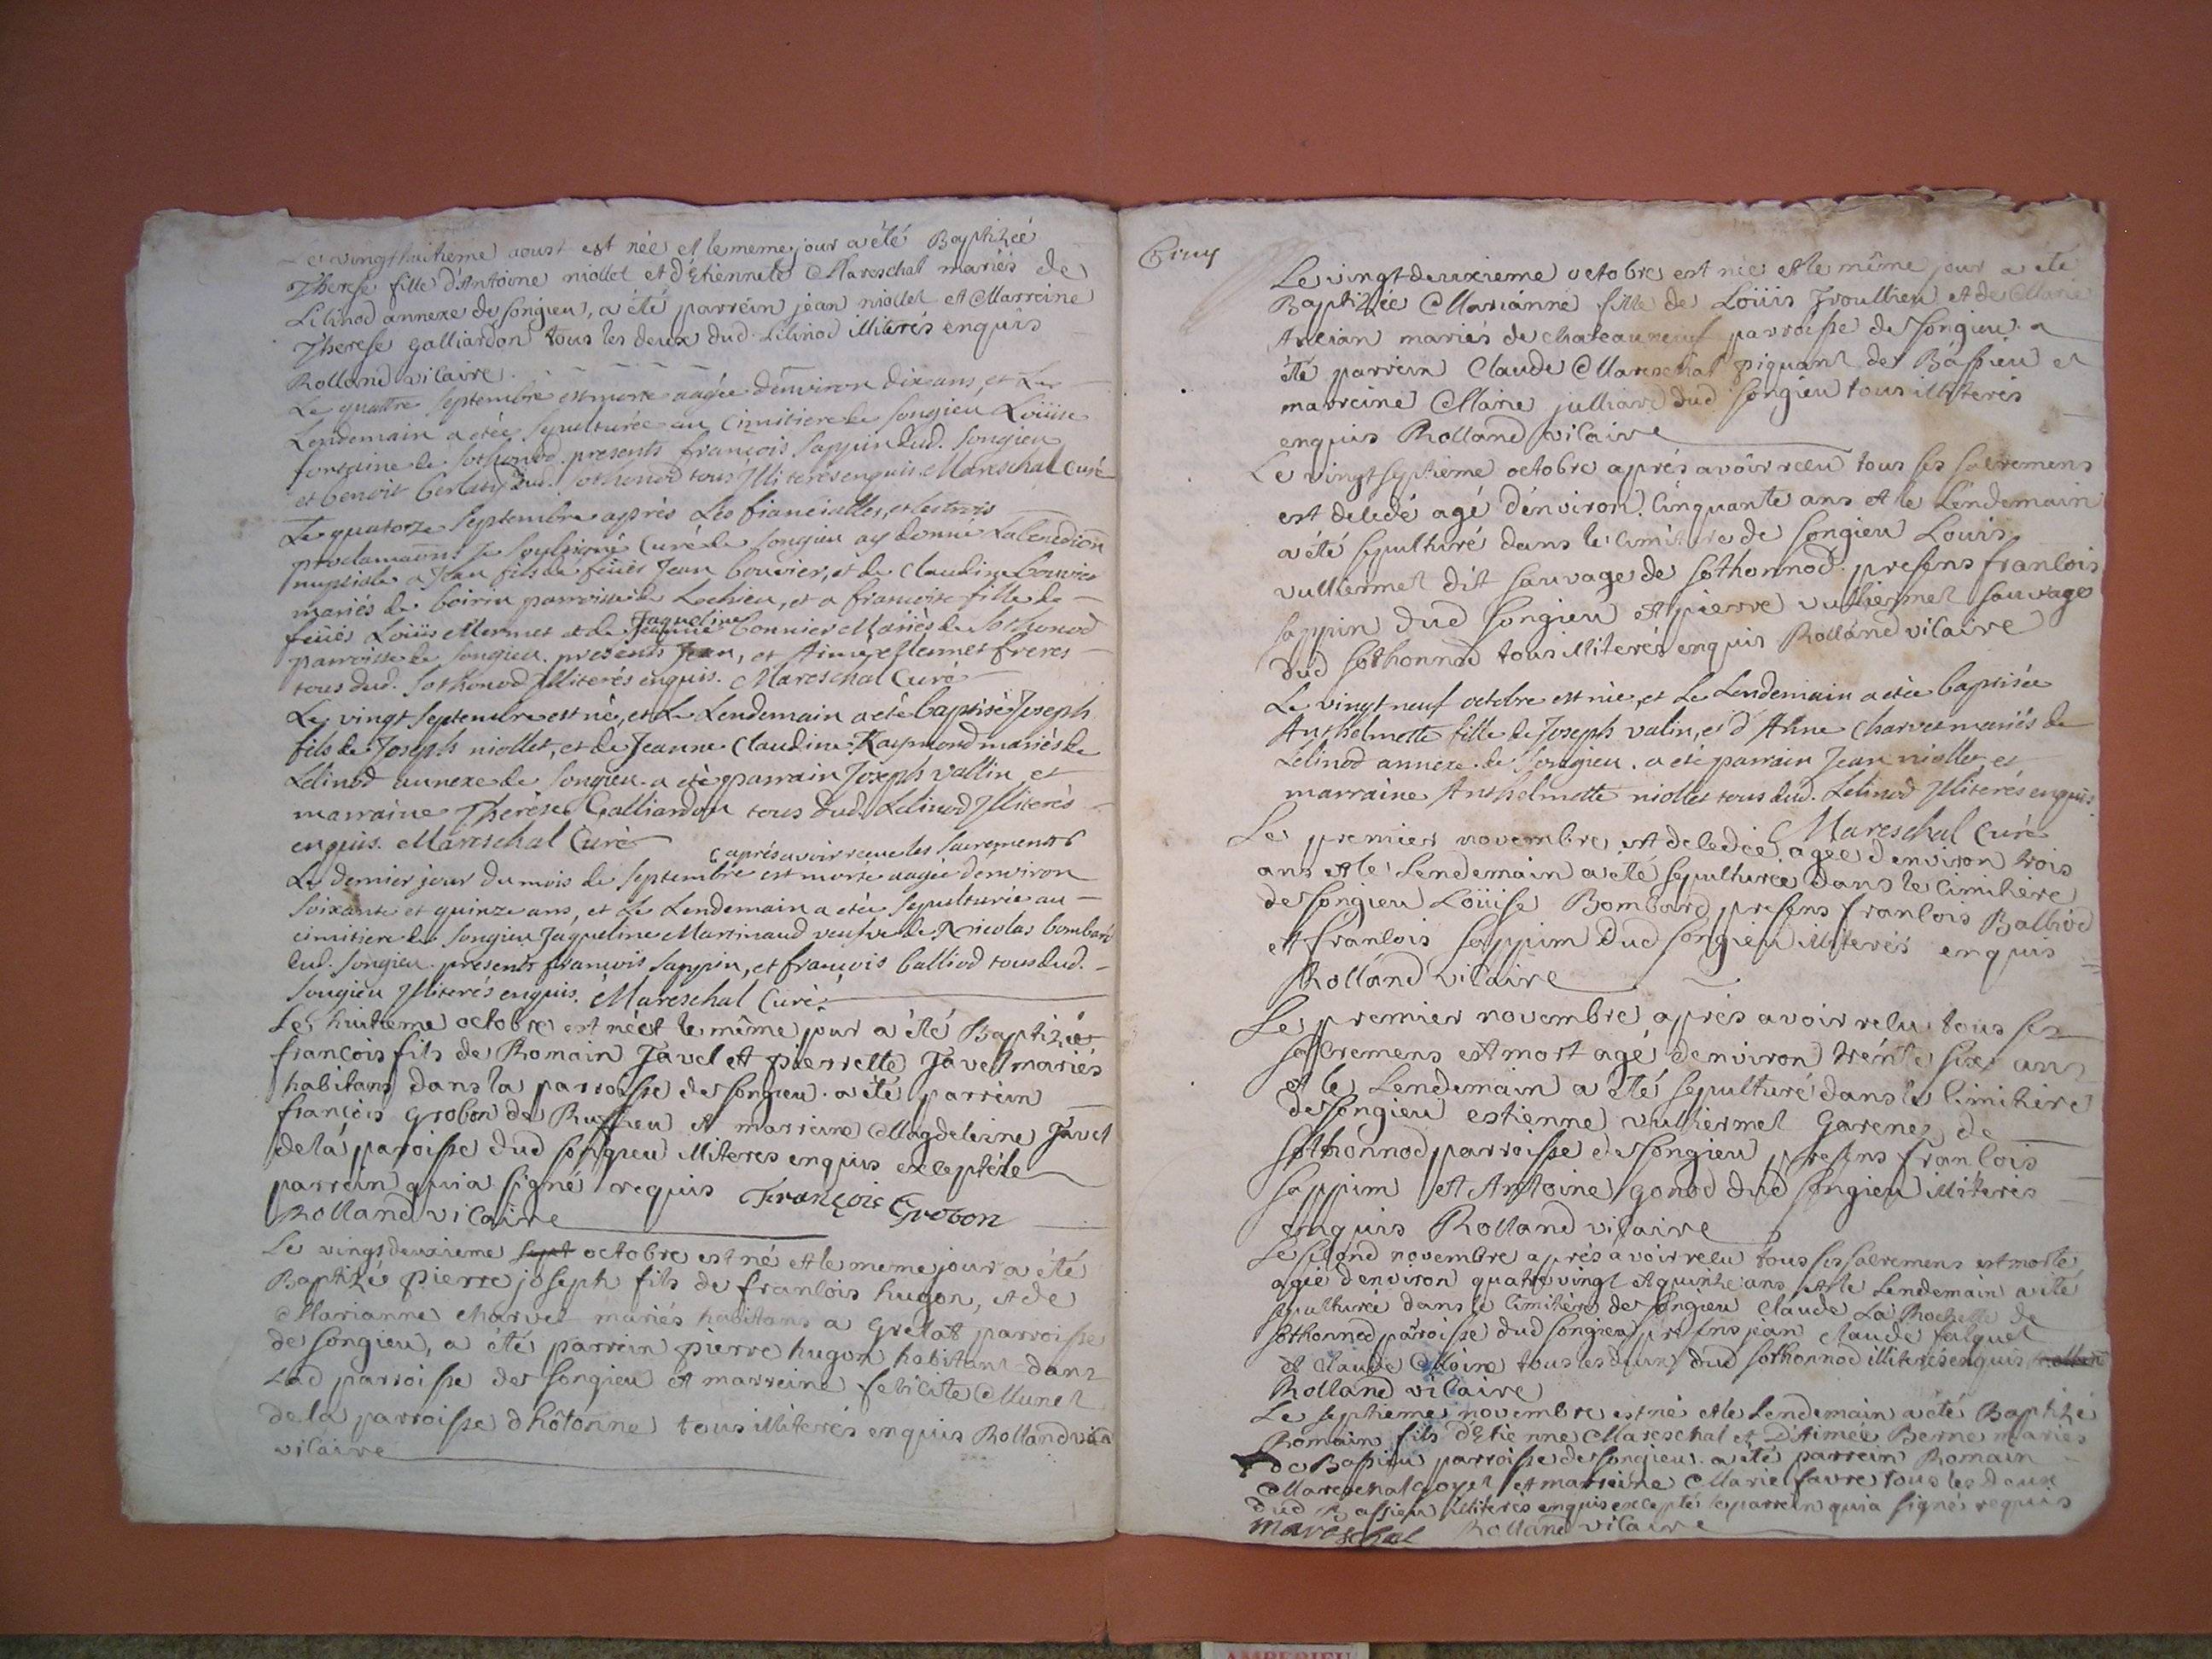 Le vingt huitieme aoust est née et le meme jour a été Baptizée
Therese fille d'Antoine niollet et d'Etiennete Mareschal mariés de
Lilinod annexe de Songieu, a été parrein jean niollet et Marreine
Therese galliardon tous les deux dud Lilinod illiterés enquis
Rolland vicaire
Le quattre septembre est morte aagée d'environ dix ans, et Le
Lendemain a etée sepulturée au Cimitiere de Songieu Loüise
fontaine de Sothonod. presents françois Sappin dud. Songieu
et benoit dud. Sothonod tous Illiterés enquis. Mareschal Curé
Le quatorze Septembre après Les fiancialles, et les trois
proclamaõns Je Soussigné Curé de Songieu ay donné La benediõn
nuptiale a Jean fils de feües Jean bouvier, et de Claudine bouvier
mariés de boirin parroisse de Lochieu, et a françoise fille de
feües Loüis Mermet et de Jaqueline bonnier Mariés de Sothonod
parroisse de Songieu. presents Jean, et Aimé Mermet freres
tous dud. Sothonod Illiterés enquis. Mareschal Curé
Le vingt Septembre est né, et Le Lendemain a eté baptisé Joseph
fils de Joseph niollet, et de Jeanne Claudine Raymond mariés de
Lilinod annexe de Songieu. a eté parrain Joseph vallin et
marraine Therèse Galliardon tous dud. Lilinod Illiterés
enquis. Mareschal Curé
après avoir receu les sacrements
Le dernier jour du mois de Septembre est morte aagée d'environ
soixante et quinze ans, et Le Lendemain a etée sepulturée au
cimitiere de Songieu Jaqueline Martinaud veufve de Nicolas bombard
dud. Songieu. presents françois Sappin, et françois balliod tous dud.
Songieu Illiterés enquis. Mareschal Curé
Le huitieme octobre est né et le même jour a été Baptizé
françois fils de Romain Javel et pierrette Javel mariés
habitans dans la parroisse de Songieu. a été parrein
françois Grobon de Ruffieu et marreine Magdeleine Javel
de la paroisse dud Songieu illiteres enquis excepté le
parrein qui a signé requis François Grobon
Rolland vicaire
Le vingt deuxieme sept octobre est né et le meme jour a été
Baptizé pierre joseph fils de francois hugon, et de
Marianne charvet mariés habitans a Grelat parroisse
de Songieu, a été parrein pierre hugon habitant dans
lad parroisse de Songieu et marreine felicite Munet
de la parroisse d'hôtonne tous illiterés enquis Rolland
vicaire
Le vingt deuxieme octobre est née et le même jour a été
Baptizée Marianne fille de Loüis Troullieu et de Marie
Ancian mariés de chateauneuf parroisse de Songieu. a
été parrein Claude Mareschal piquant de Bassieu et
marreine Marie julliard dud Songieu tous illiterés
enquis Rolland vicaire
Le vingt septieme octobre aprés avoir receu tous ses sacremens
est decedé agé d'environ Cinquante ans et le Lendemain
a été sepulturé dans le cimitière de Songieu Louis
vulliermet dit sauvage de Sothonnod. presens francois
sappin dud Songieu et pierre vulliermet sauvage
dud Sothonnod tous illiterés enquis Rolland vicaire
Le vingt neuf octobre est née, et Le Lendemain a etée baptisée
Anthelmette fille de Joseph valin, et d'Anne Charvet mariés de
Lilinod annexe de Songieu. a eté parrain Jean niollet, et
marraine Anthelmette niollet tous dud. Lilinod Illiterés enquis.
Mareschal Curé
Le premier novembre est decedée agée d'environ trois
ans et le Lendemain a été sepulturée dans le cimitière
de Songieu Loüise Bombard presens francois Balliod
et francois sappim dud Songieu illiterés enquis
Rolland vicaire
Le premier novembre aprés avoir recu tous ses
sacremens est mort agé d'environ trente six ans
et le Lendemain a été sepulturé dans le cimitière
de Songieu estienne vulliermet Garenez de
Sothonnod parroisse de Songieu presens francois
sappim et Antoine gonod dud Songieu illiterés
enquis Rolland vicaire
Le second novembre après avoir recu tous ses sacremens est morte
agée d'environ quatre vingt et quinze ans et le Lendemain a été
sepulturée dans le cimitière de Songieu Claude La Rochette de
Sothonnod paroisse dud Songieu presens jean claude falquet
et claude Moine tous les deux dud Sothonnod illiterés enquis
Rolland vicaire
Le septieme novembre est né et le Lendemain a été Baptizé
Romain fils d'Etienne Mareschal et D'Aimée Berne mariés
de Bassieu parroisse de Songieu. a été parrein Romain
Mareschal goyet et marreine Marie favre tous les deux
dud Bassieu illiterés enquis excepté le parrein qui a signé requis
mareschal Rolland vicaire